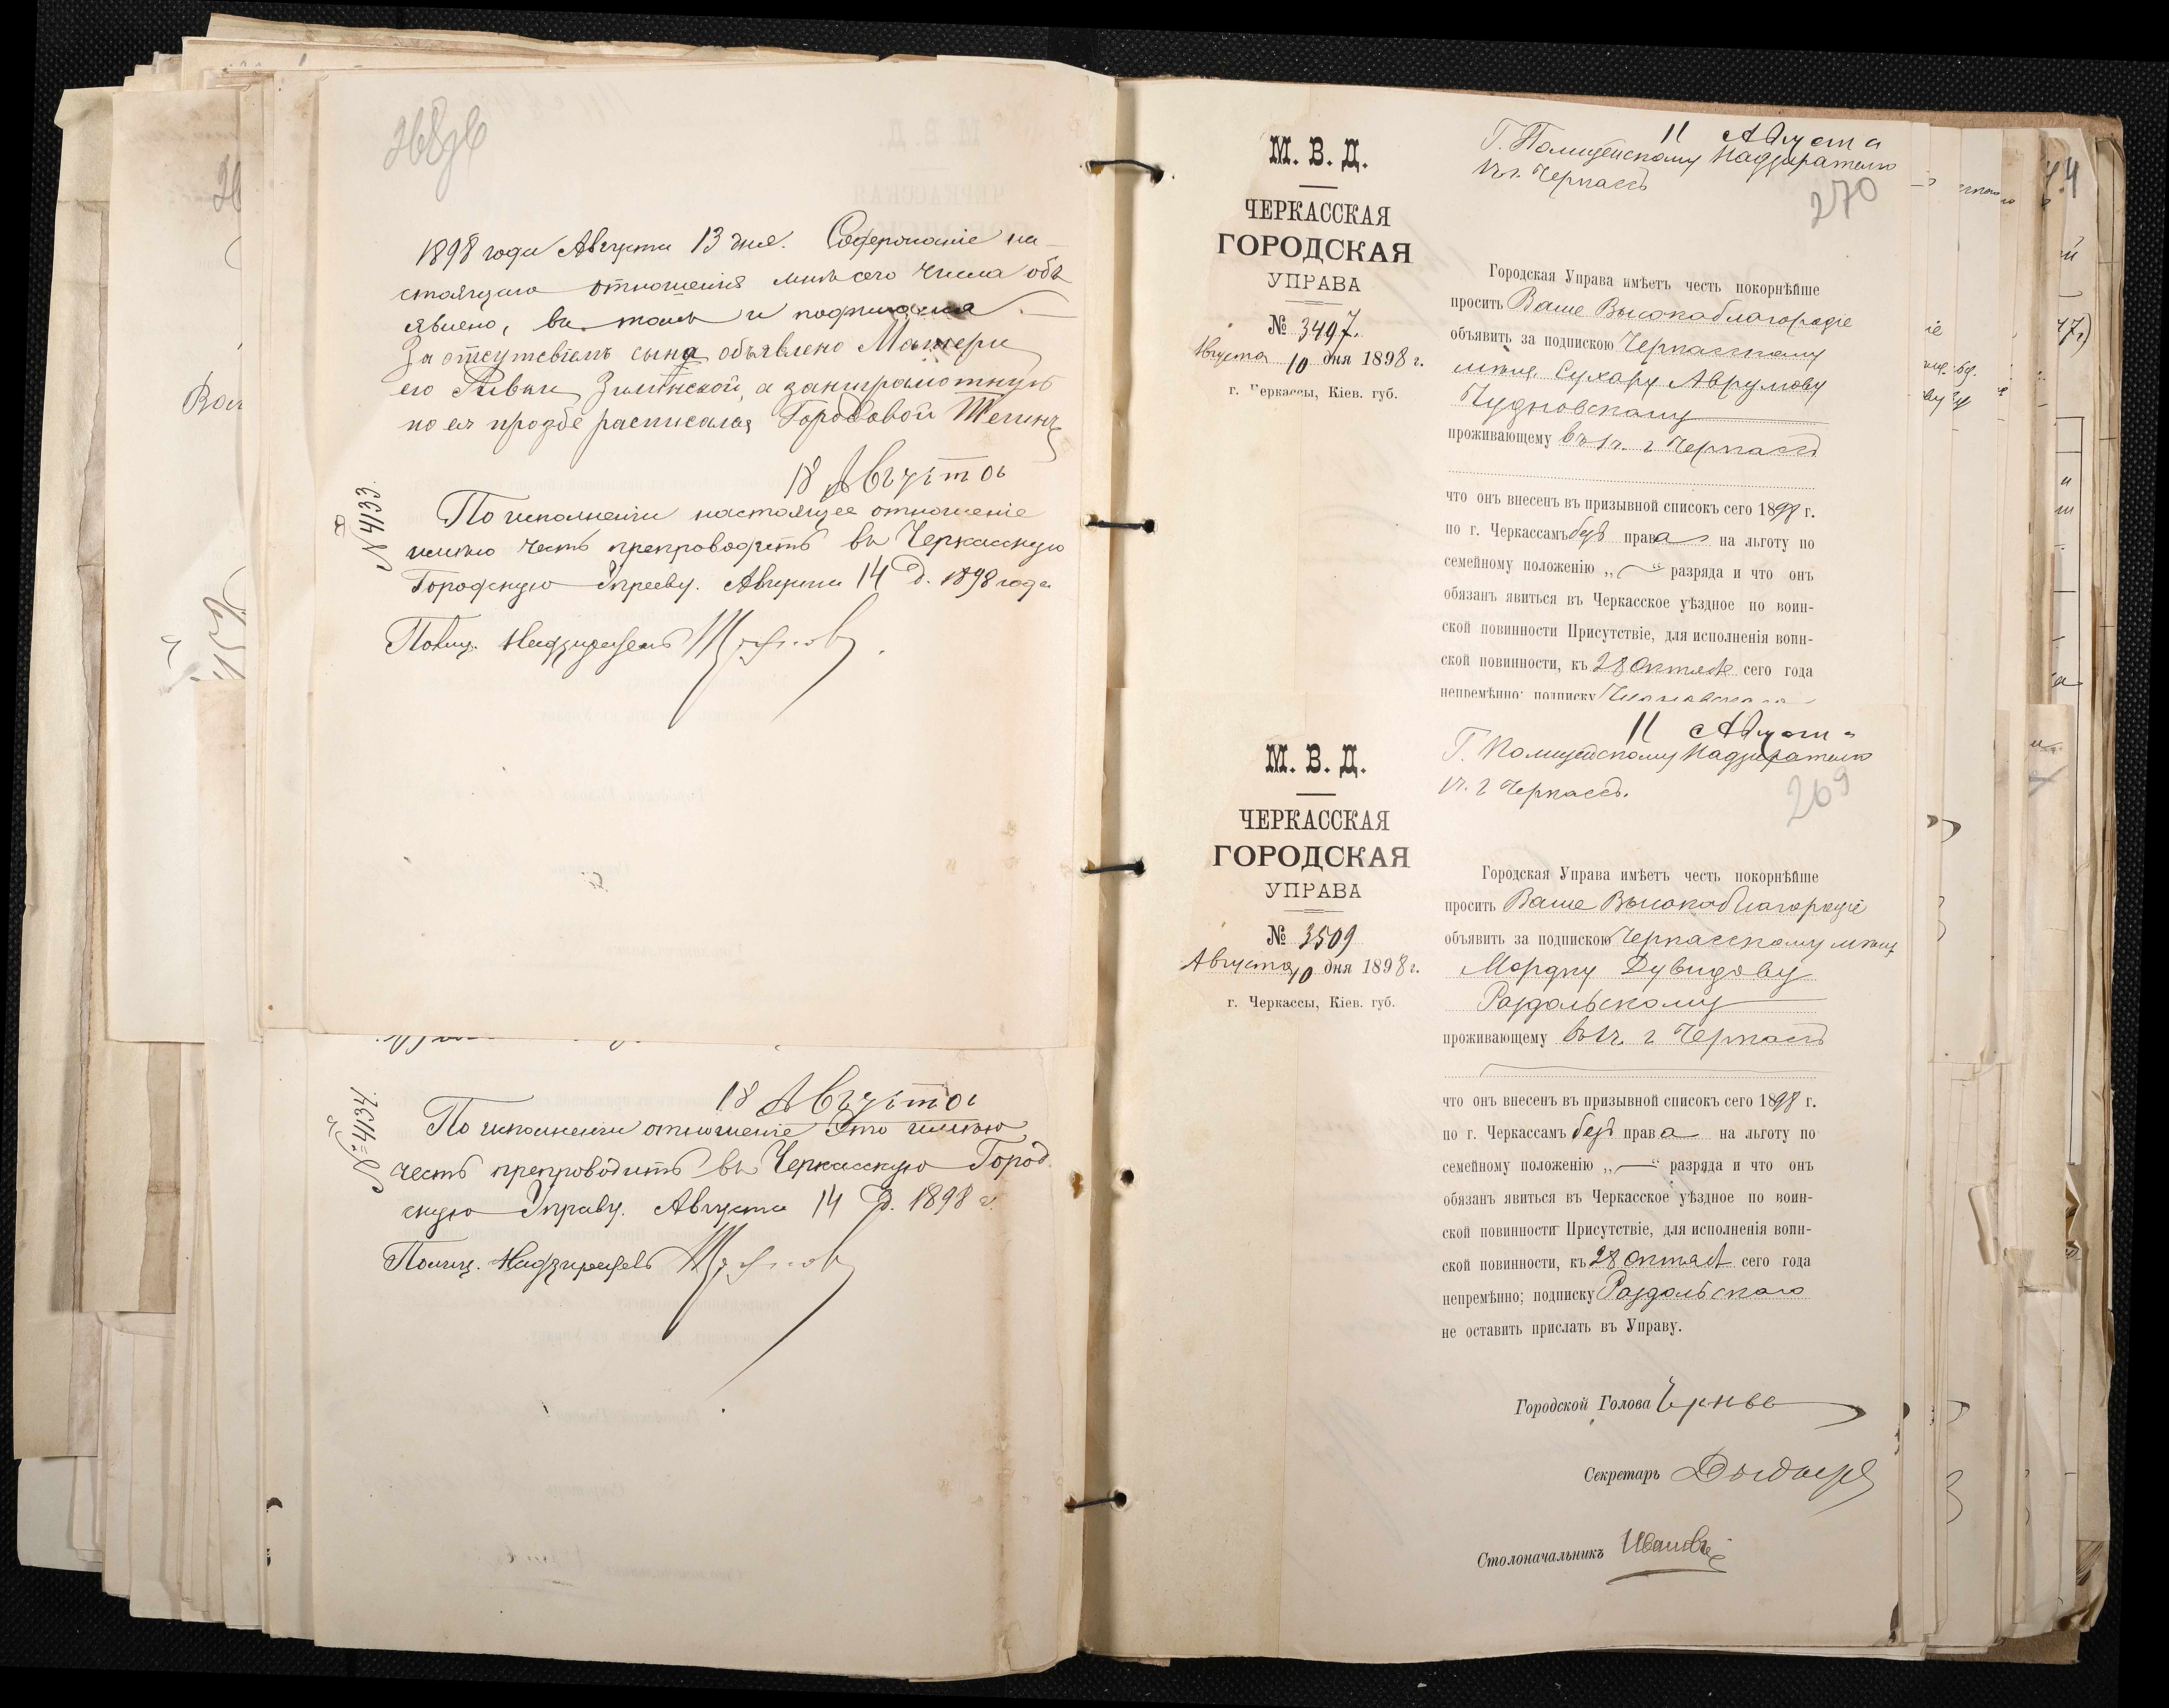 1898 года Августа 13 дня. Содержание на-
стоящаго отношенія мнѣ сего числа объ
явлено, въ томъ и подпишася
За отсутсвіемъ сына объявлено Матери
его Зилинской, а заниграмотную
по ея прозбе расписался Городовой
18 Августа
№ 4133
По исполнении настоящее отношеніе
имѣю честь препроводить въ Черкасскую
Городскую Управу. Августа 14 д. 1898 года
Полиц. Надзиратель
18 Августа
№ 4134.
По исполнении отношеніе это имѣю
честь препроводить въ Черкасскую Город
скую Управу. Августа 14 д. 1898 г.
Полиц. Надзиратель
М. В. Д.
ЧЕРКАССКАЯ
ГОРОДСКАЯ
УПРАВА
№ 3497.
Августа 10 дня 1898 г.
г. Черкассы, Кіев. губ.
11 Августа
Г. Полицейскому Надзирателю
1 ч. г. Черкассъ
270
Городская Управа имѣетъ честь покорнѣйше
просить Ваше Высокоблагородіе
объявить за подпискою Черкасскому
мѣщ. Сухару Аврумову
Чудновскому
проживающему въ 1 ч. г Черкассъ
что онъ внесенъ въ призывной списокъ сего 1898 г.
по г. Черкассамъ безъ права на льготу по
семейному положенію „—“ разряда и что онъ
обязанъ явиться въ Черкасское уѣздное по воин-
ской повинности Присутствіе, для исполненія воин-
ской повинности, къ 28 Октяб сего года
непремѣнно; подписку Чудновскаго
М. В. Д.
ЧЕРКАССКАЯ
ГОРОДСКАЯ
УПРАВА
№ 3509
Августа 10 дня 1898 г.
г. Черкассы, Кіев. губ.
11 Августа
Г. Полицейскому Надзирателю
1 ч. г Черкассъ.
269
Городская Управа имѣетъ честь покорнѣйше
просить Ваше Высокоблагородіе
объявить за подпискою Черкасскому мѣщ
Мордку Дувидову
Раздольскому
проживающему въ 1 ч. г Черкассъ
что онъ внесенъ въ призывной списокъ сего 1898 г.
по г. Черкассамъ безъ права на льготу по
семейному положенію „—“ разряда и что онъ
обязанъ явиться въ Черкасское уѣздное по воин-
ской повинности Присутствіе, для исполненія воин-
ской повинности, къ 28 Октяб сего года
непремѣнно; подписку Раздольскаго
не оставить прислать въ Управу.
Городской Голова
Секретарь
Столоначальникъ